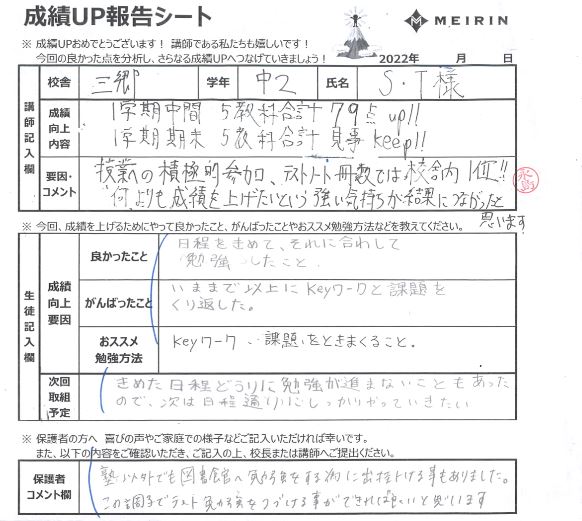 成績UP報告シート
MEIRIN
※ 成績UPおめでとうございます！ 講師である私たちも嬉しいです！
今回の良かった点を分析し、さらなる成績UPへつなげていきましょう！
2022年 月 日
校舎 三郷 学年 中2 氏名 S・T様
講師記入欄
成績向上内容
1学期中間 5教科合計 79点up!!
1学期期末 5教科合計 見事 keep!!
要因・コメント
授業への積極的参加、テストノート冊数では校舎内1位!!
何よりも成績を上げたいという強い気持ちが結果につながったと
思います
※ 今回、成績を上げるためにやって良かったこと、がんばったことやおススメ勉強方法などを教えてください。
生徒記入欄
成績向上要因
良かったこと
日程をきめて、それに合わして
勉強したこと.
がんばったこと
いままで以上にKeyワークと課題を
くり返した。
おススメ勉強方法
Keyワーク 課題をときまくること.
次回取組予定
きめた日程どうりに勉強が進まないこともあった
ので、次は日程通りにしっかりやっていきたい
※ 保護者の方へ 喜びの声やご家庭での様子などご記入いただければ幸いです。
また、以下の内容をご確認いただき、ご記入の上、校長または講師へご提出ください。
保護者コメント欄
塾以外でも図書館へ勉強をする為に出掛ける事もありました。
この調子でテスト勉強をつづける事ができれば良いと思います